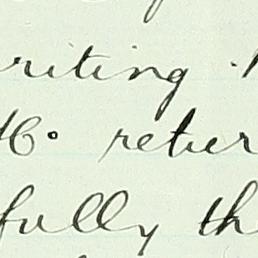 riting
retur
fully th